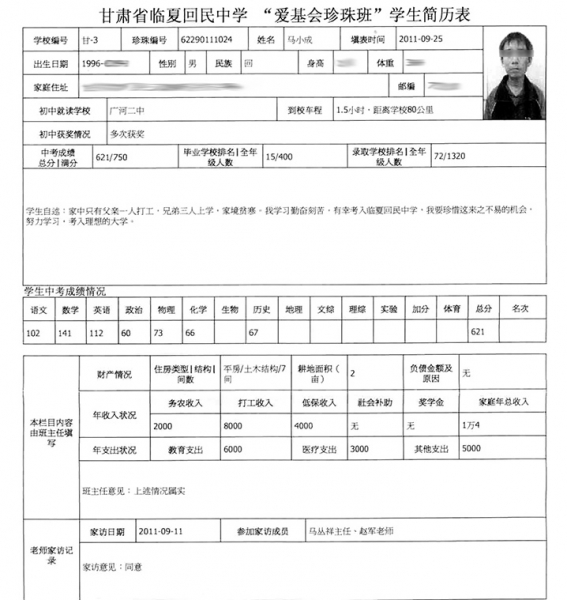 甘肃省临夏回民中学 “爱基会珍珠班”学生简历表
学校编号 甘-3 珍珠编号 62290111024 姓名 马小成 填表时间 2011-09-25
出生日期 1996- 性别 男 民族 回 身高 体重
家庭住址 邮编
初中就读学校 广河二中 到校车程 1.5小时，距离学校80公里
初中获奖情况 多次获奖
中考成绩 总分|满分 621/750 毕业学校排名|全年级人数 15/400 录取学校排名|全年级人数 72/1320
学生自述：家中只有父亲一人打工，兄弟三人上学，家境贫寒。我学习勤奋刻苦，有幸考入临夏回民中学，我要珍惜这来之不易的机会，
努力学习，考入理想的大学。
学生中考成绩情况
语文 数学 英语 政治 物理 化学 生物 历史 地理 文综 理综 实验 加分 体育 总分 名次
102 141 112 60 73 66 67 621
本栏目内容由班主任填写
财产情况 住房类型|结构|间数 平房/土木结构/7间 耕地面积（亩） 2 负债金额及原因 无
年收入状况 务农收入 打工收入 低保收入 社会补助 奖学金 家庭年总收入
2000 8000 4000 无 无 1万4
年支出状况 教育支出 6000 医疗支出 3000 其他支出 5000
班主任意见：上述情况属实
老师家访记录
家访日期 2011-09-11 参加家访成员 马丛祥主任、赵军老师
家访意见：同意